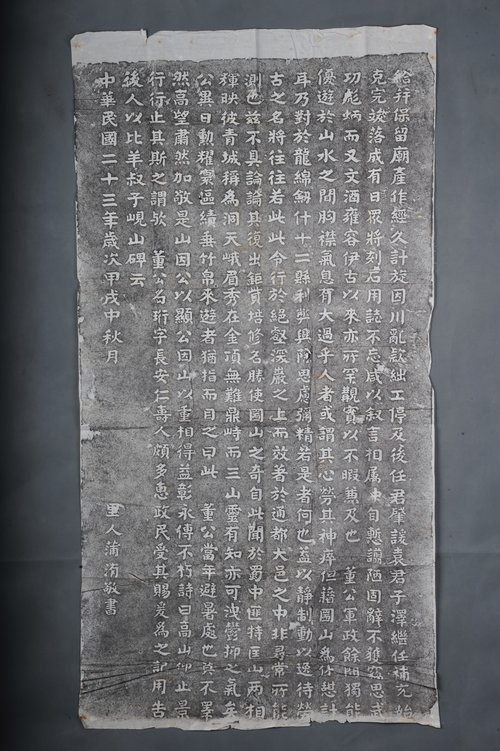 給并保留廟產作經久計旋因川亂款絀工停及後任君肇護袁君子澤繼任補充始
克完竣落成有日眾將刻石用誌不忘咸以敘言相屬東自慙譾陋固辭不獲竊思武
功彪炳而又文酒雍容伊古以來亦所罕觀實以不暇兼及也 董公軍政餘閒獨能
優遊於山水之間胸襟氣息有大過乎人者或謂其心勞其神瘁但藉圌山為休憩計
耳乃對於龍綿劒什十二縣利弊興除思慮彌精若是者何也蓋以靜制動以逸待勞
古之名將往往若此此令行於絕壑深巖之上而效著於通都大邑之中非尋常所能
測也茲不具論論其復出鉅貲培修名勝使圌山之奇自此聞於蜀中匪特匡山兩相
輝映彼青城稱為洞天峨眉秀在金頂無難鼎峙而三山靈有知亦可洩鬱抑之氣矣
公異日勳耀寰區績垂竹帛來遊者猶指而目之曰此 董公當年避暑處也莫不睪
然高望肅然加敬是山因公以顯公因山以重相得益彰永傳不朽詩曰高山仰止景
行行止其斯之謂歟 董公名珩字長安仁壽人頗多惠政民受其賜爰為之記用告
後人以比羊叔子峴山碑云
中華民國二十三年歲次甲戌中秋月
里人蒲洧敬書